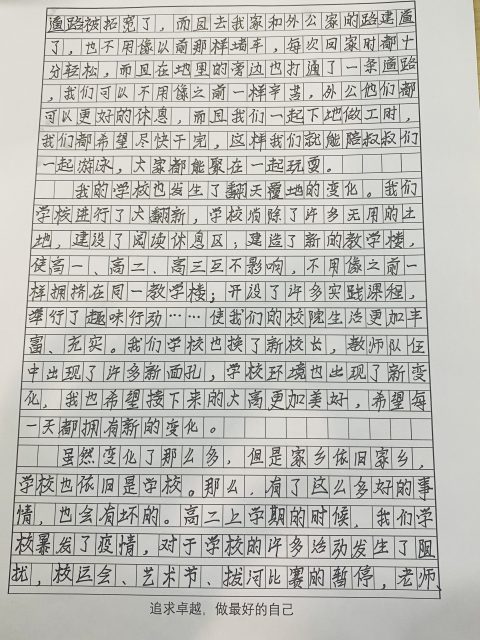 道路被拓宽了，而且去我家和外公家的路建通
了，也不用像以前那样堵车，每次回家时都十
分轻松，而且在地里的旁边也打通了一条道路
，我们可以不用像之前一样辛苦，外公他们都
可以更好的休息，而且我们一起下地做工时，
我们都希望尽快干完，这样我们就能陪叔叔们
一起游泳，大家都能聚在一起玩耍。
我的学校也发生了翻天覆地的变化。我们
学校进行了大翻新，学校填除了许多无用的土
地，建设了阅读休息区；建造了新的教学楼，
使高一、高二、高三互不影响，不用像之前一
样拥挤在同一教学楼；开设了许多实践课程，
举行了趣味行动……使我们的校院生活更加丰
富、充实。我们学校也换了新校长，教师队伍
中出现了许多新面孔，学校环境也出现了新变
化，我也希望接下来的大高更加美好，希望每
一天都拥有新的变化。
虽然变化了那么多，但是家乡依旧家乡，
学校也依旧是学校。那么，有了这么多好的事
情，也会有坏的。高二上学期的时候，我们学
校暴发了疫情，对于学校的许多活动发生了阻
扰，校运会、艺术节、拔河比赛的暂停，老师、
追求卓越，做最好的自己